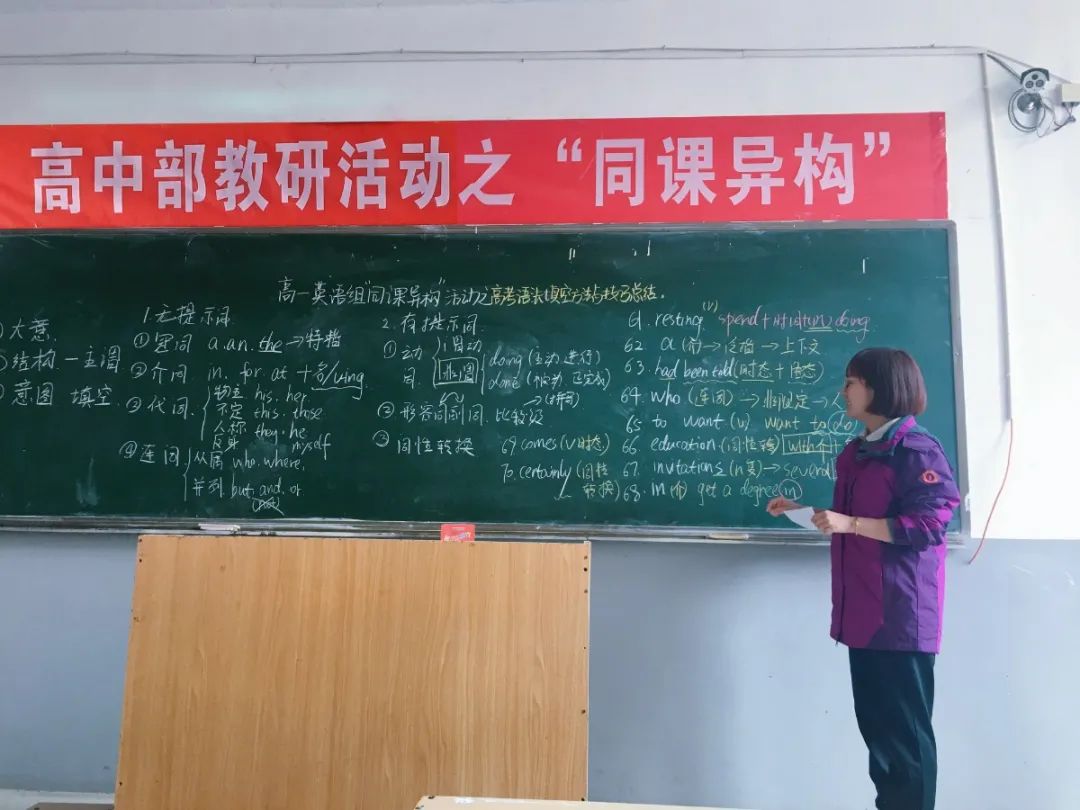 高中部教研活动之“同课异构”
高一英语组"同课异构"活动之高考语法填空方法与技巧总结.
大意.
结构 一 主谓
意图 填空
1.无提示词.
①冠词 a.an. the→特指
②介词 in. for. at + 名/ving
③代词
物主 his. her
不定 this. those
人称 they. he
反身 myself
④连词
从属 who. where,
并列 but. and. or
2. 有提示词.
①动词
谓动
非谓
doing (主动 进行)
done (被动 完成)
②形容词副词 比较级
③词性转换
69 comes (v 时态)
70. certainly (词性转换)
61. resting. (v) spend + 时间(in) doing
62. a (冠)→泛指→上下文
63. had been told (时态+语态)
64. who (连词)→非限定→人
65 to want (v) want to do
66 education (词性转)
67. invitations (n 复)→several
68. in (介) get a degree in